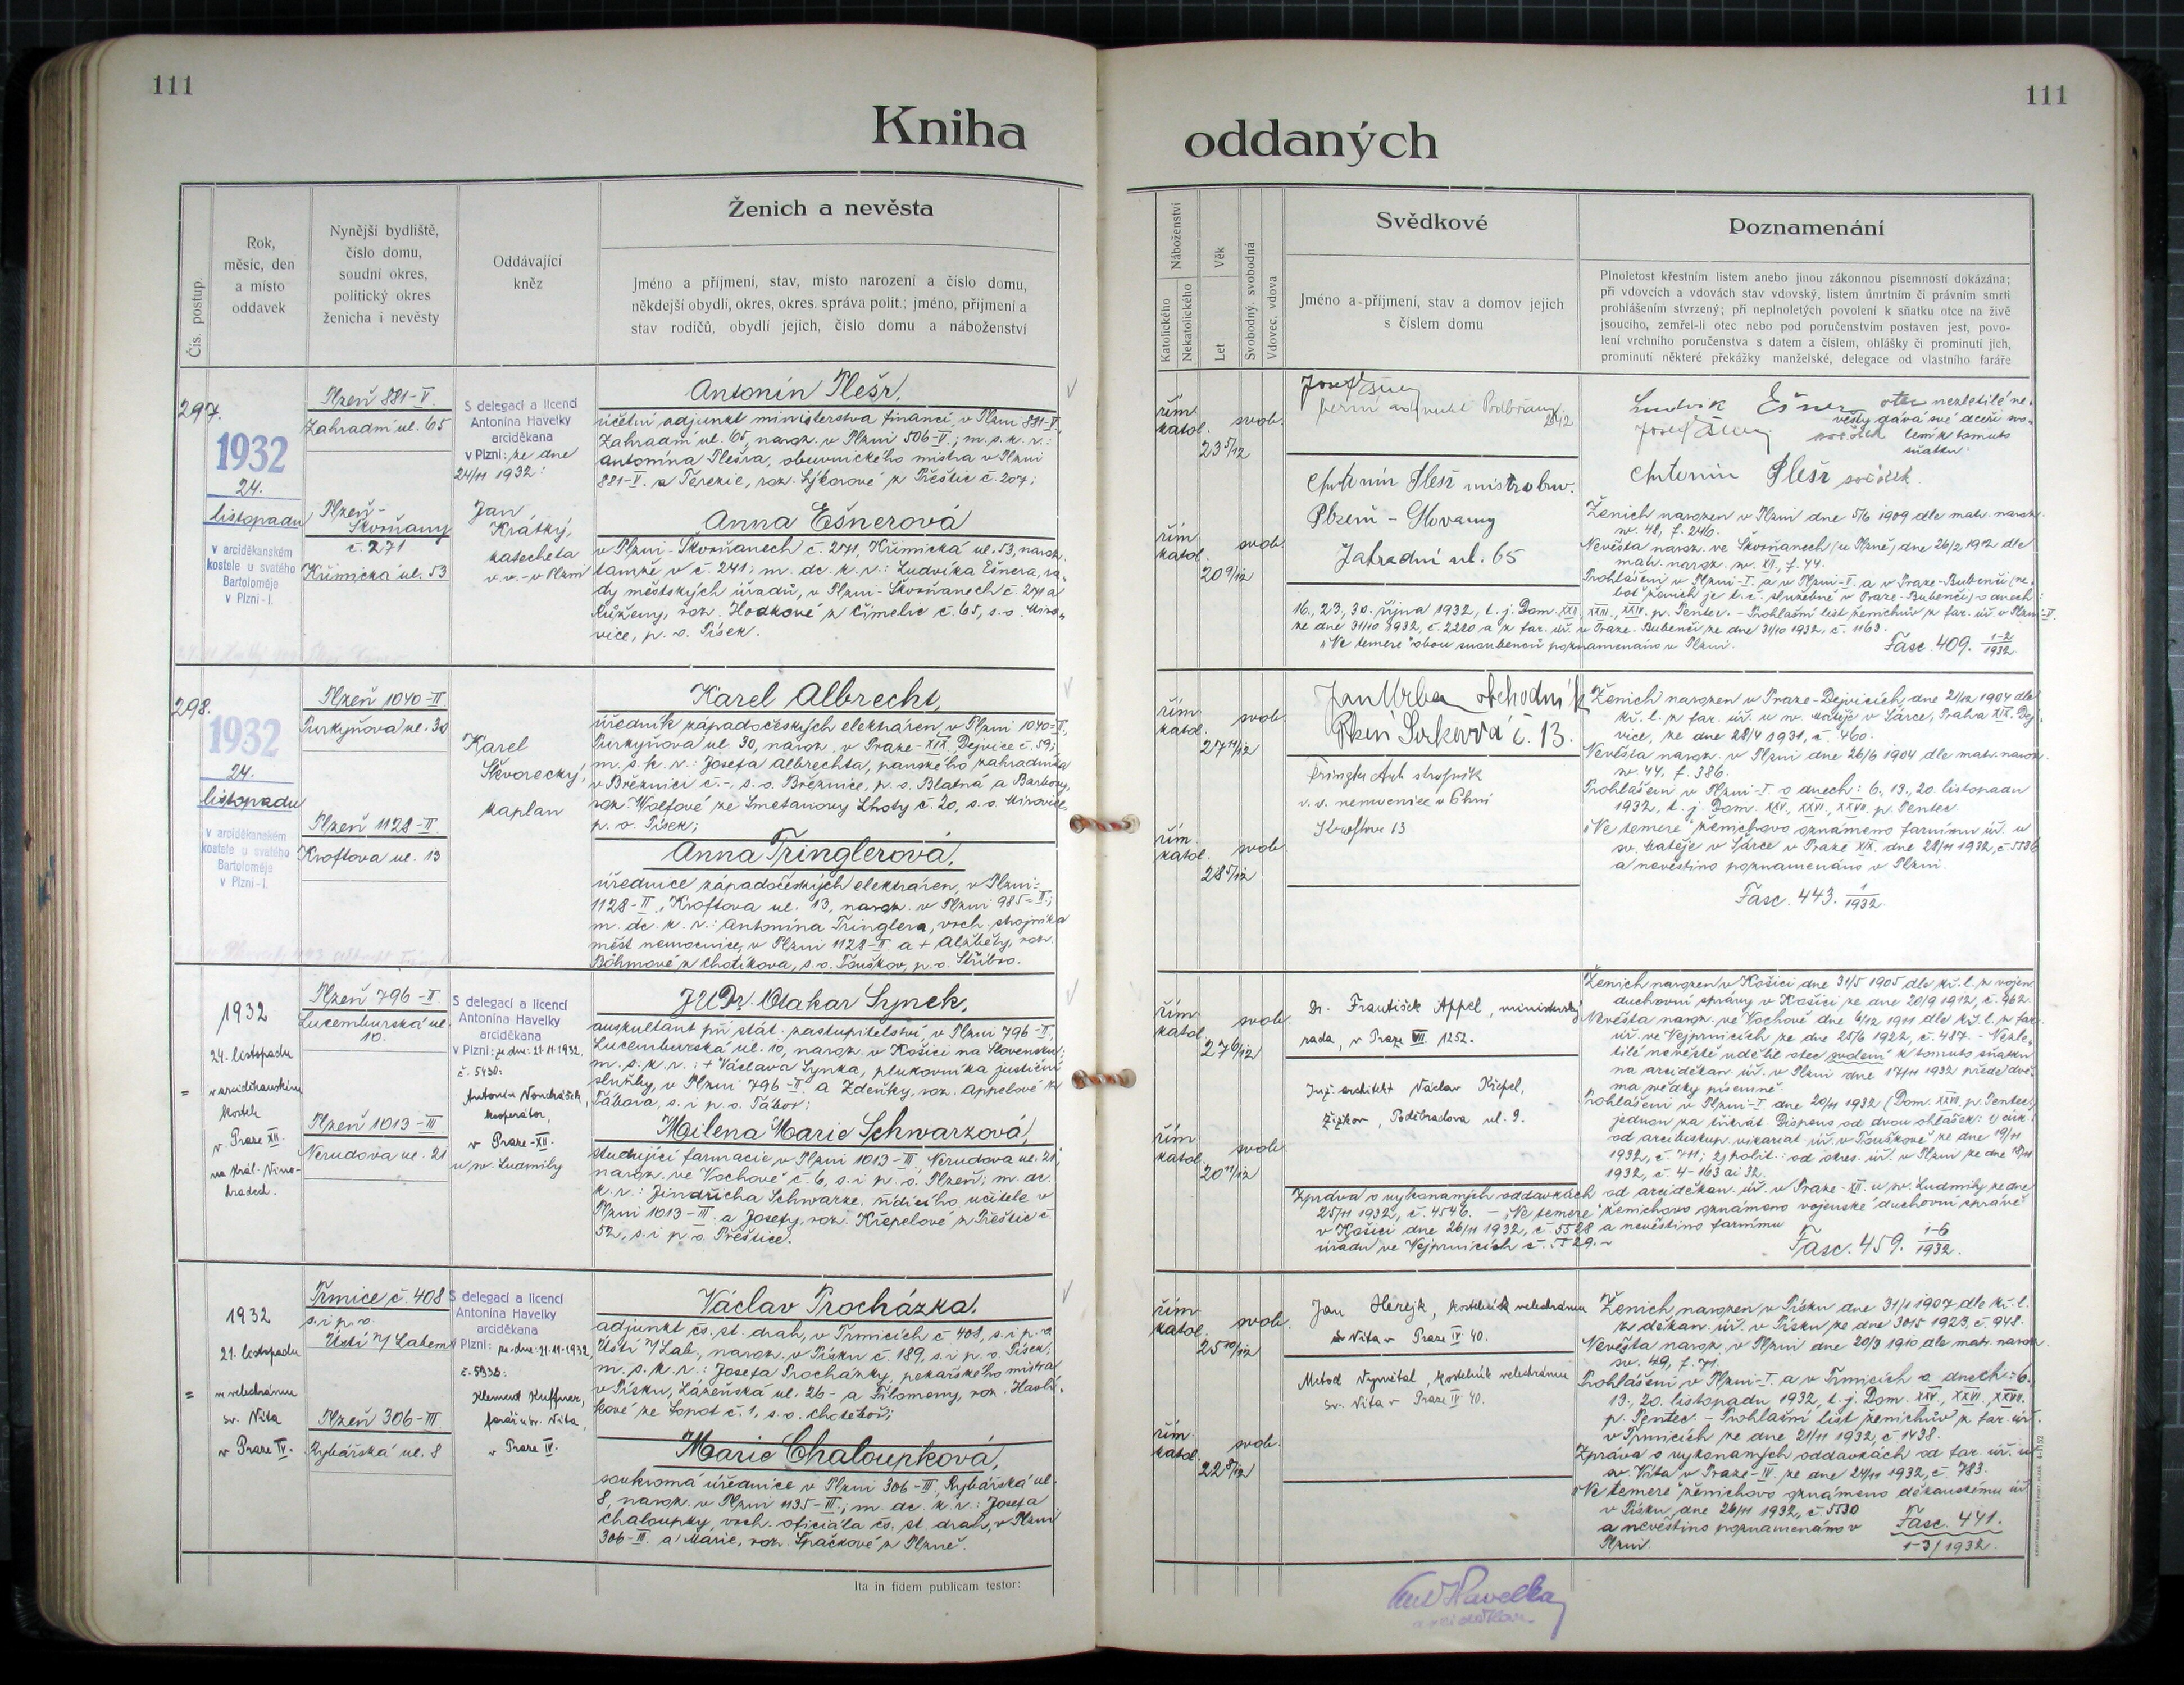 111
111
Kniha
oddaných
Čís. postup.
Rok,
měsíc, den
a místo
oddavek
Nynější bydliště,
číslo domu,
soudní okres,
politický okres
ženicha i nevěsty
Oddávající
kněz
Ženich a nevěsta
Jméno a příjmení, stav, místo narození a číslo domu,
někdejší obydlí, okres, okres. správa polit.; jméno, příjmení a
stav rodičů, obydlí jejich, číslo domu a náboženství
Náboženství
Katolického
Nekatolického
Věk
Let
Svobodný, svobodná
Vdovec, vdova
Svědkové
Jméno a příjmení, stav a domov jejich
s číslem domu
Poznamenání
Plnoletost křestním listem anebo jinou zákonnou písemností dokázána;
při vdovcích a vdovách stav vdovský, listem úmrtním či právním smrti
prohlášením stvrzený; při neplnoletých povolení k sňatku otce na živě
jsoucího, zemřel-li otec nebo pod poručenstvím postaven jest, povo-
lení vrchního poručenstva s datem a číslem, ohlášky či prominutí jich,
prominutí některé překážky manželské, delegace od vlastního faráře
297.
1932
24.
listopadu
v arciděkanském
kostele u svatého
Bartoloměje
v Plzni-I.
Plzeň 881-V.
Zahradní ul. 65
Plzeň-
Skvrňany
č. 271
Křimická ul. 53
S delegací a licencí
Antonína Havelky
arciděkana
v Plzni: ze dne
24/11 1932:
Jan
Krátký,
katecheta
v. v. - v Plzni
Antonín Plešr,
účetní adjunkt ministerstva financí, v Plzni 881-V.,
Zahradní ul. 65, naroz. v Plzni 506-V.; m. s. k. r.:
Antonína Plešra, obuvnického mistra v Plzni
881-V. a Terezie, roz. Lýkorové z Přeštic č. 207;
Anna Ešnerová
v Plzni-Skvrňanech č. 271, Křimická ul. 53, naroz.
tamže v č. 241; m. dc. k. r.: Ludvíka Ešnera,
městských úřadů, v Plzni-Skvrňanech č. 271 a
Růženy, roz. Hodkové z Čimelic č. 65, s. o. Miro-
vice, p. o. Písek.
řím.
katol.
23 5/12
svob.
řím.
katol.
20 9/12
svob.
Antonín Plešr mistr obuv.
Plzeň - Slovany
Zahradní ul. 65
16., 23., 30. října 1932, t. j. Dom. XXII., XXIII., XXIV. p. Pentec. - Prohlašní list ženichův z far. úř. v Plzni-V.
ze dne 31/10 1932, č. 2220 a z far. úř. v Praze-Bubenči ze dne 31/10 1932, č. 1163.
„Ne temere" obou snoubenců poznamenáno v Plzni.
Fasc. 409. 1-2/1932
Ludvík Ešner otec nezletilé ne-
věsty dává své dceři svo-
lení k tomuto
sňatku.
Antonín Plešr svědek
Ženich narozen v Plzni dne 5/6 1909 dle matr. naroz.
sv. 48, f. 246.
Nevěsta naroz. ve Skvrňanech (u Plzně) dne 26/2 1912 dle
matr. naroz. sv. XII., f. 44.
Prohlášeni v Plzni-I. a v Plzni-V. a v Praze-Bubenči (ne-
boť ženich je t. č. služebně v Praze-Bubenči) o dnech:
298.
1932
24.
listopadu
v arciděkanském
kostele u svatého
Bartoloměje
v Plzni-I.
Plzeň 1040-II
Purkyňova ul. 30
Plzeň 1128-II.
Kroftova ul. 13
Karel
Škvorecký,
kaplan
Karel Albrecht,
úředník západočeských elektráren, v Plzni 1040-II.,
Purkyňova ul. 30, naroz. v Praze-XIX. Dejvice č. 59;
m. s. k. r.: Josefa Albrechta, panského zahradníka
v Březnici č.-, s. o. Březnice, p. o. Blatná a Barbory,
roz. Wolfové ze Smetanovy Lhoty č. 20, s. o. Mirovice,
p. o. Písek;
Anna Tringlerová,
úřednice západočeských elektráren, v Plzni-
1128-II., Kroftova ul. 13, naroz. v Plzni 985-II.;
m. dc. k. r.: Antonína Tringlera, vrch. strojníka
měst. nemocnice, v Plzni 1128-II. a + Alžběty, roz.
Böhmové z Chotíkova, s. o. Touškov, p. o. Stříbro.
řím.
katol.
27 11/12
svob.
řím.
katol.
28 5/12
svob.
Jan Vrba obchodník
Plzeň č. 13.
Tringler Ant strojník
v. v. nemocnice v Plzni
Kroftova 13
Ženich narozen v Praze-Dejvicích dne 21/12 1904 dle
kř. l. z far. úř. u sv. Matěje v Šárce, Praha XIX. Dej-
vice, ze dne 28/4 1931, č. 460.
Nevěsta naroz. v Plzni dne 26/6 1904 dle matr. naroz.
sv. 44, f. 386.
Prohlášeni v Plzni-I. o dnech: 6., 13., 20. listopadu
1932, t. j. Dom. XXV., XXVI., XXVII. p. Pentec.
„Ne temere" ženichovo oznámeno farnímu úř. u
sv. Matěje v Šárce v Praze XIX. dne 28/11 1932, č. 5536
a nevěstino poznamenáno v Plzni.
Fasc. 443. 1/1932.
=
1932
24. listopadu
v arciděkanském
kostele
v Praze XII.
na Král. Vino-
hradech.
Plzeň 796-II.
Lucemburská ul.
10.
Plzeň 1013-III.
Nerudova ul. 21
S delegací a licencí
Antonína Havelky
arciděkana
v Plzni: ze dne: 21.11.1932.
č. 5430:
Antonín
kooperátor,
v Praze-XII.
u sv. Ludmily
JUDr. Otakar Synek,
auskultant při stát. zastupitelství, v Plzni 796-II.,
Lucemburská ul. 10, naroz. v Košici na Slovensku;
m. s. k. r.: + Václava Synka, plukovníka justiční
služby, v Plzni 796-II. a Zdeňky, roz. Appelové z
Tábora, s. i p. o. Tábor;
Milena Marie Schwarzová,
studující farmacie, v Plzni 1013-III., Nerudova ul. 21,
naroz. ve Vochově č. 6, s. i p. o. Plzeň; m. dc.
k. r.: Jindřicha Schwarze, řídícího učitele v
Plzni 1013-III. a Josefy, roz. Křepelové z Přeštic č.
52, s. i p. o. Přeštice.
řím.
katol.
27 6/12
svob.
řím.
katol.
20 11/12
svob.
Dr. František Appel, ministerský
rada, v Praze VII. 1252.
Ing. architekt Václav Křepel,
Žižkov, Poděbradova ul. 9.
Ženich narozen v Košici dne 31/5 1905 dle kř. l. z vojen.
duchovní správy v Košici ze dne 20/9 1912, č. 962.
Nevěsta naroz. ve Vochově dne 6/12 1911 dle kř. l. z far.
úř. ve Vejprnicích ze dne 25/6 1922, č. 487. - Nezle-
tilé nevěstě udělil otec svolení k tomuto sňatku
na arciděkan. úř. v Plzni dne 17/11 1932 přede dvě-
ma svědky písemně.
Prohlášeni v Plzni-I. dne 20/11 1932 (Dom. XXVII. p. Pentec.)
jednou za třikrát. Dispens od dvou ohlášek: 1) církv.:
od arcibiskup. vikariát. úř. v Touškově ze dne 19/11
1932, č. 711; 2) polit.: od okres. úř. v Plzni ze dne 18/11
1932, č. 4-163 ai 32.
Zpráva o vykonaných oddavkách od arciděkan. úř. v Praze-XII. u sv. Ludmily ze dne
25/11 1932, č. 4546. - „Ne temere" ženichovo oznámeno vojenské duchovní správě
v Košici dne 26/11 1932, č. 5528 a nevěstino farnímu
úřadu ve Vejprnicích č. 5529.
Fasc. 459. 1-6/1932.
=
1932
21. listopadu
ve velechrámu
sv. Víta
v Praze IV.
Trmice č. 408
s. i p. o.
Ústí n/Labem
Plzeň 306-III.
Rybářská ul. 8
S delegací a licencí
Antonína Havelky
arciděkana
v Plzni: ze dne: 21.11.1932,
Klement Kuffner,
farář u sv. Víta,
v Praze IV.
Václav Procházka,
adjunkt čs. st. drah, v Trmicích č. 408, s. i p. o.
Ústí n/Lab., naroz. v Písku č. 189, s. i p. o. Písek;
m. s. k. r.: Josefa Procházky, pekařského mistra
v Písku, Lázeňská ul. 26 - a Filomeny, roz. Havlí-
kové ze Sopot č. 1, s. o. Chotěboř;
Marie Chaloupková,
soukromá úřednice v Plzni 306-III., Rybářská ul.
8, naroz. v Plzni 1135-III.; m. dc. k. r.: Josefa
Chaloupky, vrch. oficiála čs. st. drah, v Plzni
306-III. a Marie, roz. Špačkové z Plzně.
řím.
katol.
25 10/12
svob.
řím.
katol.
22 8/12
svob.
Jan Herejk, kostelník velechrámu
sv. Víta v Praze IV. 40.
Metod Vymětal, kostelník velechrámu
sv. Víta v Praze IV. 40.
Ženich narozen v Písku dne 31/1 1907 dle kř. l.
z děkan. úř. v Písku ze dne 30/5 1923, č. 948.
Nevěsta naroz. v Plzni dne 20/3 1910 dle matr. naroz.
sv. 49, f. 71.
Prohlášeni v Plzni-I. a v Trmicích o dnech: 6.,
13., 20. listopadu 1932, t. j. Dom. XXV., XXVI., XXVII.
p. Pentec. - Prohlašní list ženichův z far. úř.
v Trmicích ze dne 21/11 1932, č. 1438.
Zpráva o vykonaných oddavkách od far. úř. u
sv. Víta v Praze-IV. ze dne 24/11 1932, č. 783.
„Ne temere" ženichovo oznámeno děkanskému úř.
v Písku dne 26/11 1932, č. 5530
a nevěstino poznamenáno v
Plzni.
Fasc. 441.
1-3/1932.
Ita in fidem publicam testor:
Ant. Havelka
arciděkan